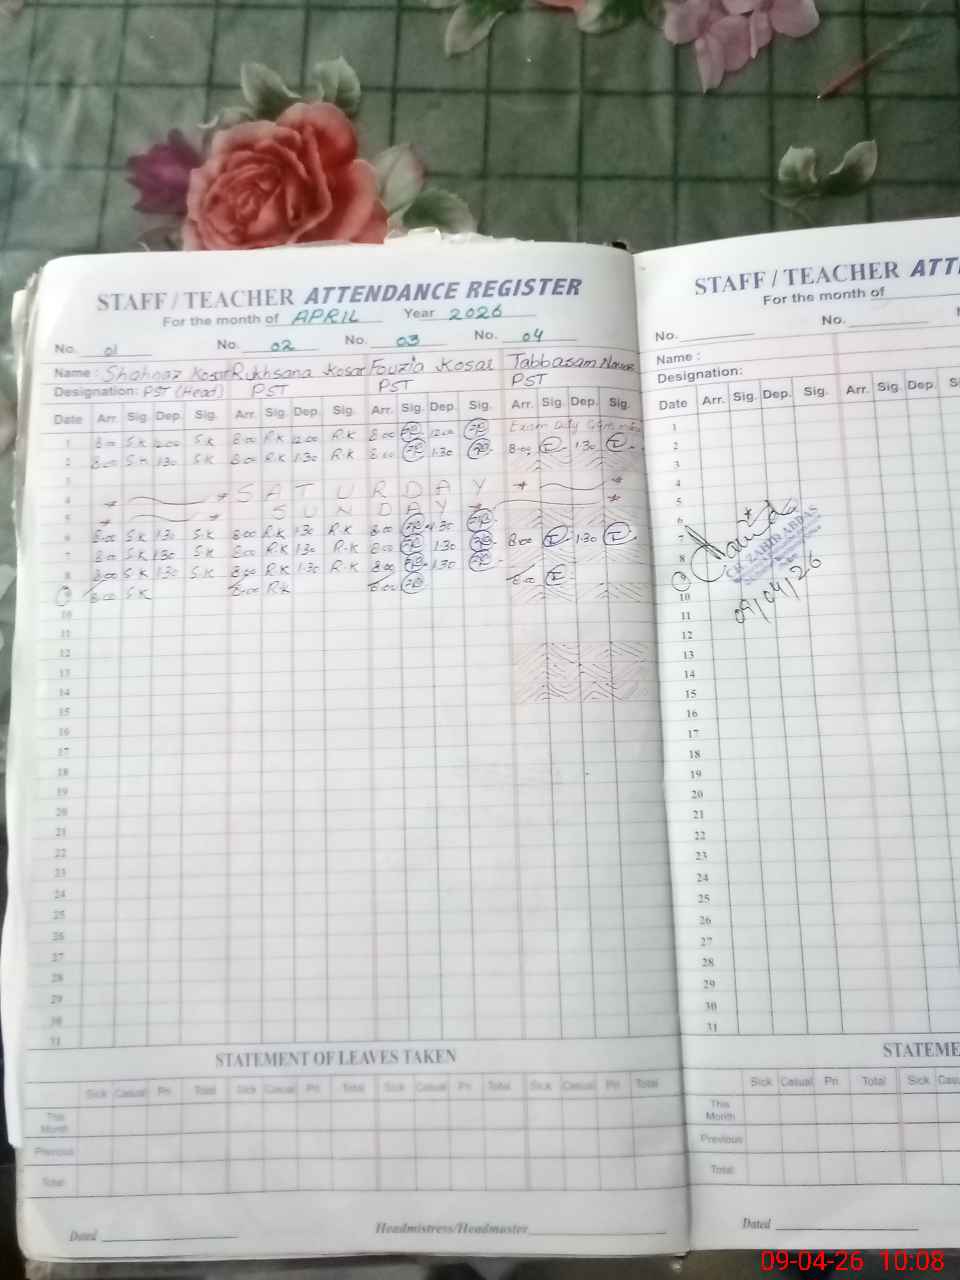 STAFF / TEACHER ATTENDANCE REGISTER
For the month of APRIL Year 2026
No. 01 No. 02 No. 03 No. 04
Name : Shahnaz Kosar Rukhsana Kosar Fouzia Kosar Tabbasam
Designation: PST (Head) PST PST PST
Date Arr. Sig. Dep. Sig. Arr. Sig. Dep. Sig. Arr. Sig. Dep. Sig. Arr. Sig. Dep. Sig.
1 8:00 S.K 12:00 S.K 8:00 R.K 12:00 R.K 8:00 12:00 Exam Duty
2 8:00 S.K 1:30 S.K 8:00 R.K 1:30 R.K 8:00 1:30 8:00 1:30
3
4 SATURDAY
5 SUNDAY
6 8:00 S.K 1:30 S.K 8:00 R.K 1:30 R.K 8:00 1:30
7 8:00 S.K 1:30 S.K 8:00 R.K 1:30 R.K 8:00 1:30 8:00 1:30
8 8:00 S.K 1:30 S.K 8:00 R.K 1:30 R.K 8:00 1:30
9 8:00 S.K 8:00 R.K 8:00 8:00
10
11
12
13
14
15
16
17
18
19
20
21
22
23
24
25
26
27
28
29
30
31
STATEMENT OF LEAVES TAKEN
Sick Casual Pri Total Sick Casual Pri Total Sick Casual Pri Total Sick Casual Pri Total
This Month
Previous
Total
Dated Headmistress/Headmaster
STAFF / TEACHER ATT
For the month of
No. No.
Name :
Designation:
Date Arr. Sig. Dep. Sig. Arr. Sig. Dep.
1
2
3
4
5
6
7
8
9
10
11
12
13
14
15
16
17
18
19
20
21
22
23
24
25
26
27
28
29
30
31
ZAHID ABBAS
09/04/26
STATEME
Sick Casual Pri Total Sick
This Month
Previous
Total
Dated
09-04-26 10:08